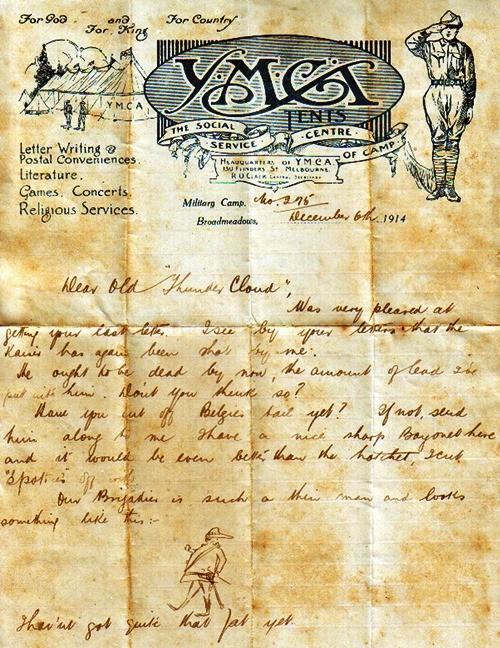 For God and For King For Country
Y.M.C.A
TENTS
YMCA
THE SOCIAL CENTRE.
SERVICE OF CAMP.
Letter Writing &
Postal Conveniences.
Literature.
Games, Concerts.
Religious Services.
HEADQUARTERS OF Y.M.C.A.
130 FLINDERS ST MELBOURNE.
Military Camp, No. 275
Broadmeadows, December 6th. 1914
Dear Old "Thunder Cloud",
Was very pleased at
getting your last letter. I see by your letters that the
Kaiser has again been shot by me.
He ought to be dead by now, the amount of lead I've
put into him. Don't you think so?
Have you cut off Belgies tail yet? If not, send
him along to me I have a nice sharp Bayonet here
and it would be even better than the hatchet, I cut
"Spot's" off with
Our Brigadier is such a thin man and looks
something like this:-
I hav'nt got quite that fat yet.